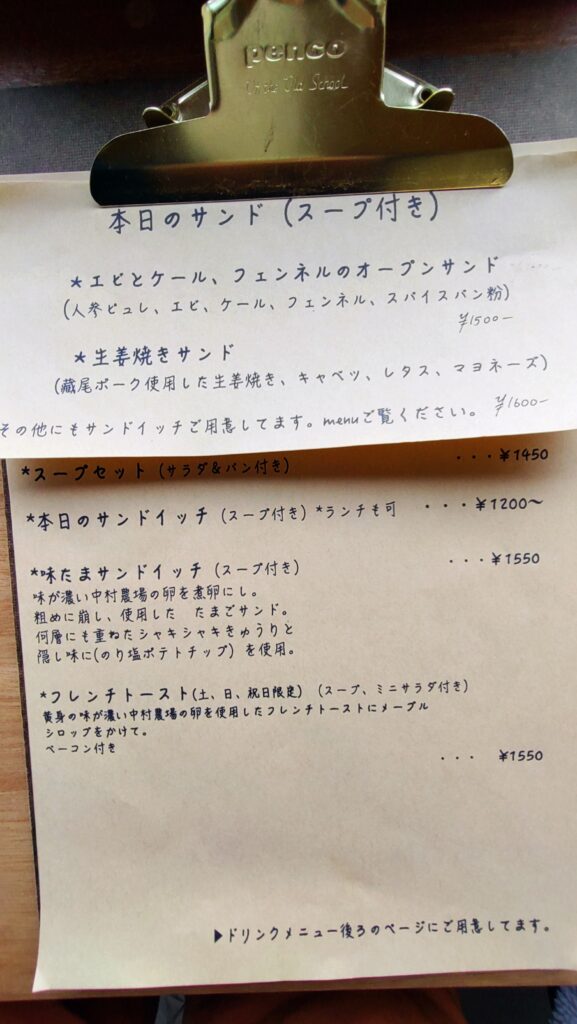 penco
本日のサンド（スープ付き）
*エビとケール、フェンネルのオープンサンド
(人参ピュレ、エビ、ケール、フェンネル、スパイスパン粉)
¥1500-
*生姜焼きサンド
(蔵尾ポーク使用した生姜焼き、キャベツ、レタス、マヨネーズ)
¥1600-
その他にもサンドイッチご用意してます。menuご覧ください。
*スープセット（サラダ&パン付き） ・・・¥1450
*本日のサンドイッチ（スープ付き）*ランチも可 ・・・¥1200〜
*味たまサンドイッチ（スープ付き） ・・・¥1550
味が濃い中村農場の卵を煮卵にし。
粗めに崩し、使用した たまごサンド。
何層にも重ねたシャキシャキきゅうりと
隠し味に(のり塩ポテトチップ）を使用。
*フレンチトースト(土、日、祝日限定）（スープ、ミニサラダ付き）
黄身の味が濃い中村農場の卵を使用したフレンチトーストにメープル
シロップをかけて。
ベーコン付き
・・・ ¥1550
▶ドリンクメニュー後ろのページにご用意してます。